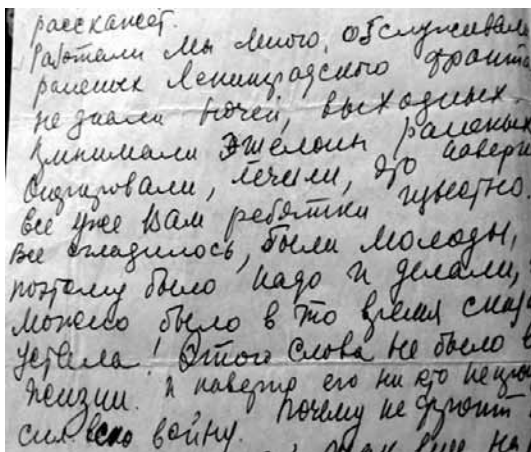 расскажет.
Работали мы много, обслуживали
раненых Ленинградского фронта
не знали ночей, выходных.
Принимали эшелоны раненых
Оперировали, лечили, это наверн
все уже Вам ребятки известно
Все сгладилось, были молоды,
поэтому было надо и делали,
можно было в то время сказ
устала! Этого слова не было в
жизни. И наверно его ни кто не произ
сил всю войну. Почему не фронт
так уже на